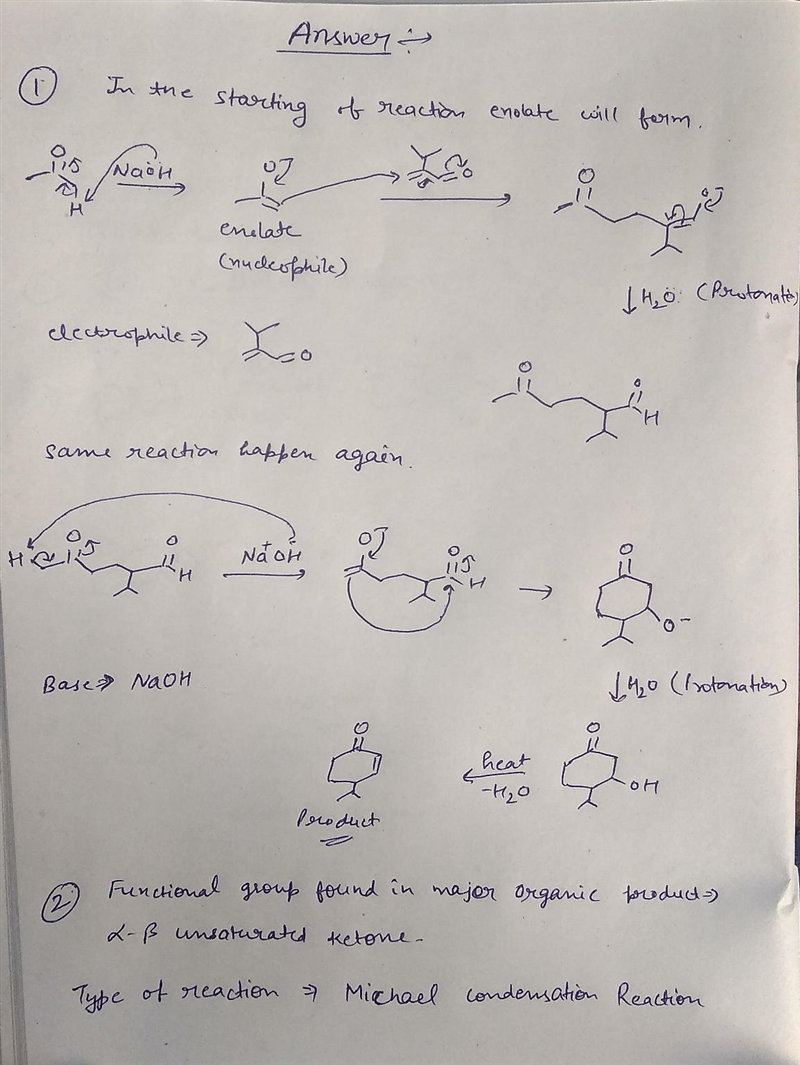 Answer :→
① In the starting of reaction enolate will form.
O
H
NaOH
O
enolate
(nucleophile)
O
O
O
↓ H₂O: (Protonation)
electrophile ⇒
O
O
O
H
same reaction happen again.
H
O
O
H
Na⁺OH
O
O
H
→
O
O⁻
Base ⇒ NaOH
↓ H₂O (Protonation)
O
Product
heat
-H₂O
O
OH
② Functional group found in major organic product ⇒
α-β unsaturated ketone-
Type of reaction ⇒ Michael condensation Reaction